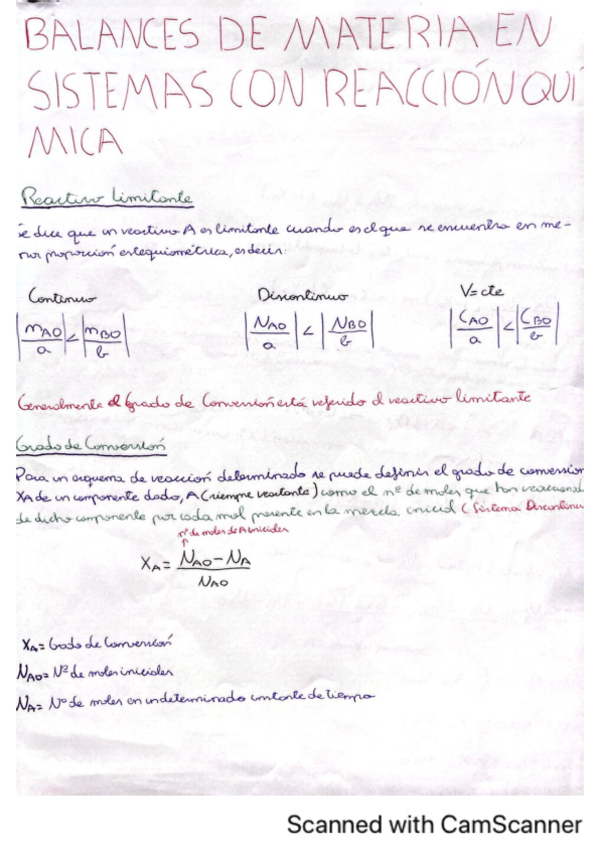 BALANCES DE MATERIA EN
SISTEMAS CON REACCIÓN QUÍ
MICA
Reactivo Limitante
Se dice que un reactivo A es limitante cuando es el que se encuentra en me-
nor proporción estequiométrica, es decir:
Continuo Discontinuo V=cte
|mAO/a|<|mBO/b| |NAO/a|<|NBO/b| |CAO/a|<|CBO/b|
Generalmente el grado de conversión está referido al reactivo limitante
Grado de Conversión
Para un esquema de reacción determinado se puede definir el grado de conversion
XA de un componente dado, A (siempre reactante) como el nº de moles que han reaccionad
de dicho componente por cada mol presente en la mezcla inicial (Sistema Discontinuo
nº de moles de A iniciales
XA = NAO-NA/NAO
XA = Grado de Conversión
NAO = Nº de moles iniciales
NA = Nº de moles en un determinado instante de tiempo
Scanned with CamScanner